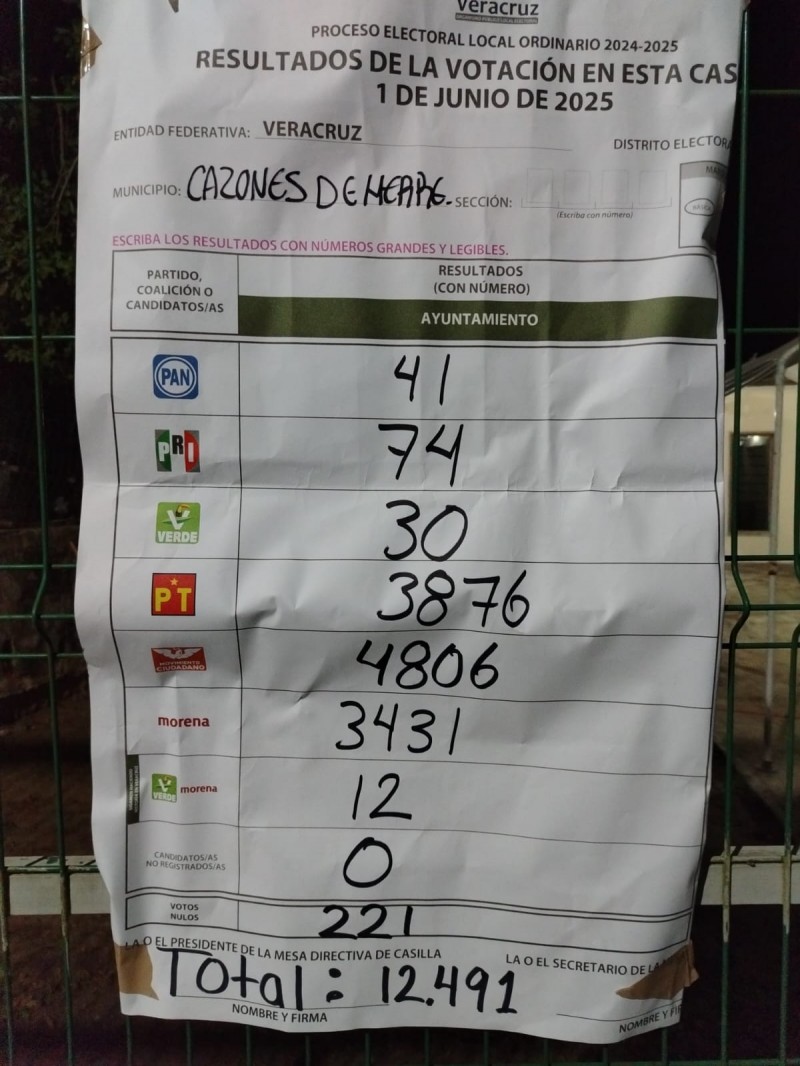 Veracruz
PROCESO ELECTORAL LOCAL ORDINARIO 2024-2025
RESULTADOS DE LA VOTACIÓN EN ESTA CAS
1 DE JUNIO DE 2025
ENTIDAD FEDERATIVA: VERACRUZ
DISTRITO ELECTORA
MUNICIPIO: CAZONES DE HERRE. SECCIÓN:
(Escriba con número)
ESCRIBA LOS RESULTADOS CON NÚMEROS GRANDES Y LEGIBLES.
PARTIDO, COALICIÓN O CANDIDATOS/AS
RESULTADOS
(CON NÚMERO)
AYUNTAMIENTO
PAN 41
PRI 74
VERDE 30
PT 3876
MOVIMIENTO CIUDADANO 4806
morena 3431
VERDE morena 12
CANDIDATOS/AS NO REGISTRADOS/AS 0
VOTOS NULOS 221
LA O EL PRESIDENTE DE LA MESA DIRECTIVA DE CASILLA LA O EL SECRETARIO DE LA
Total: 12.491
NOMBRE Y FIRMA NOMBRE Y FI